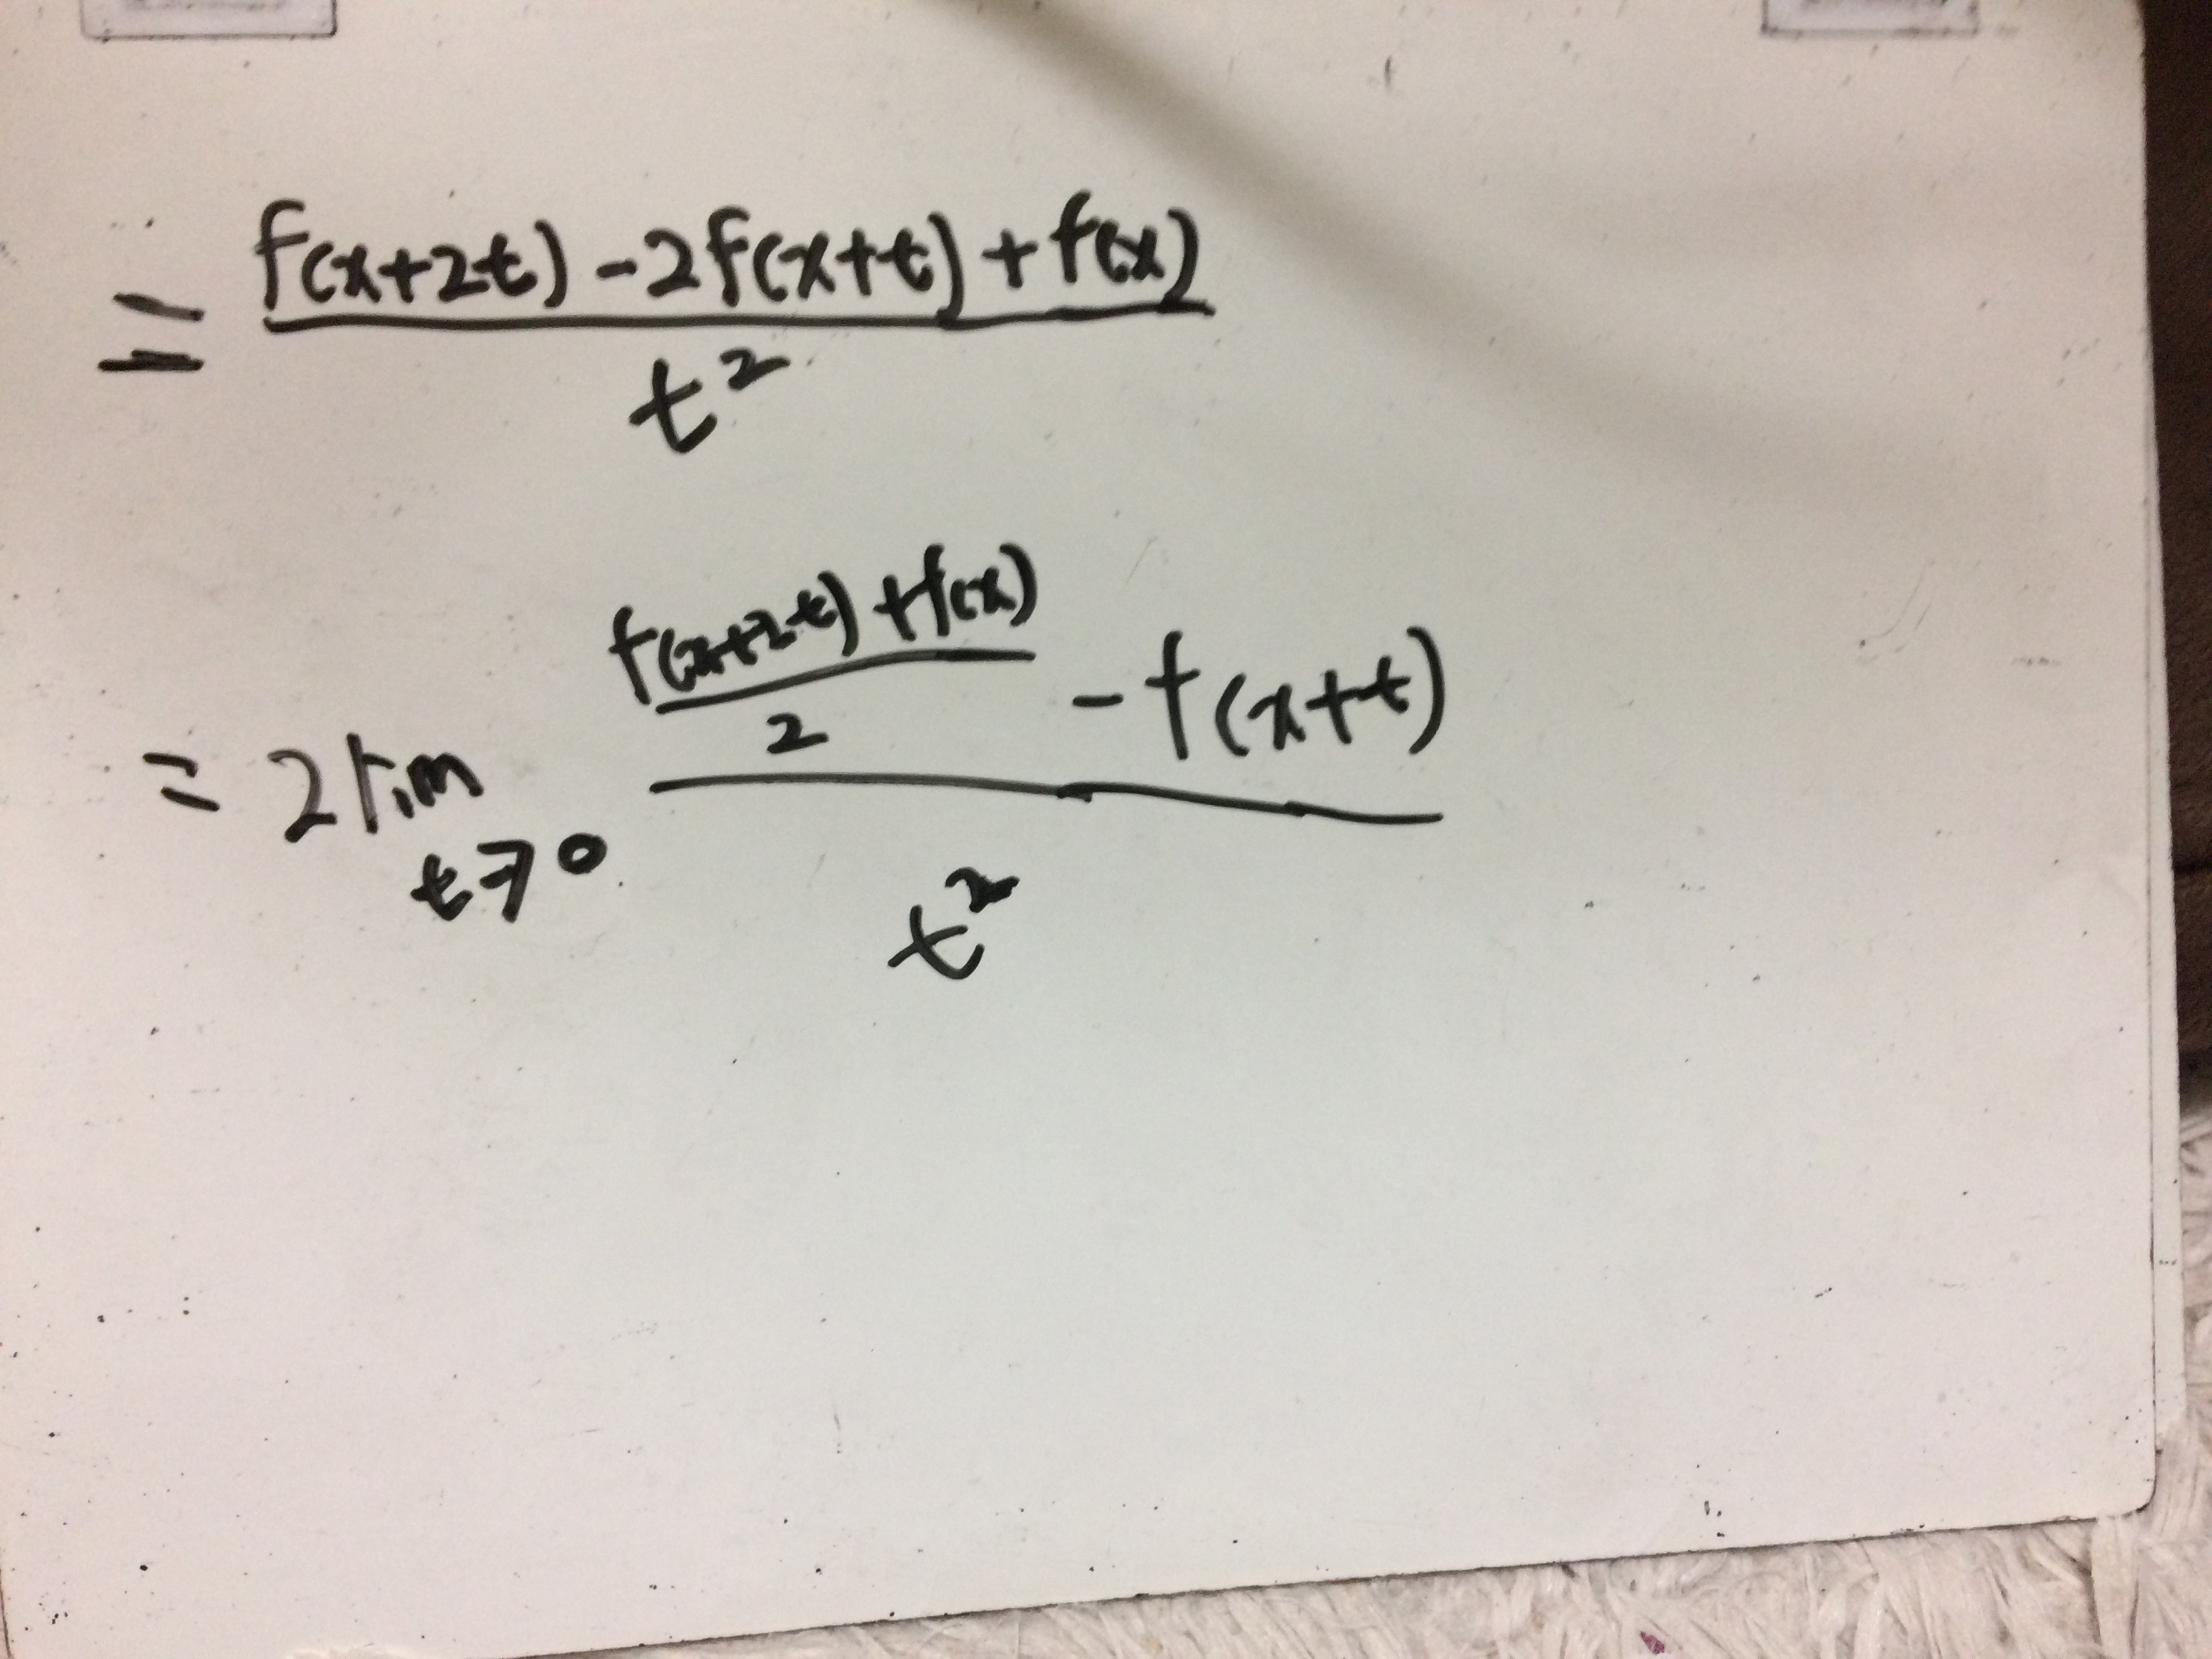 = \frac{f(x+2t) - 2f(x+t) + f(x)}{t^2}
= 2 \lim_{t \to 0} \frac{\frac{f(x+2t) + f(x)}{2} - f(x+t)}{t^2}